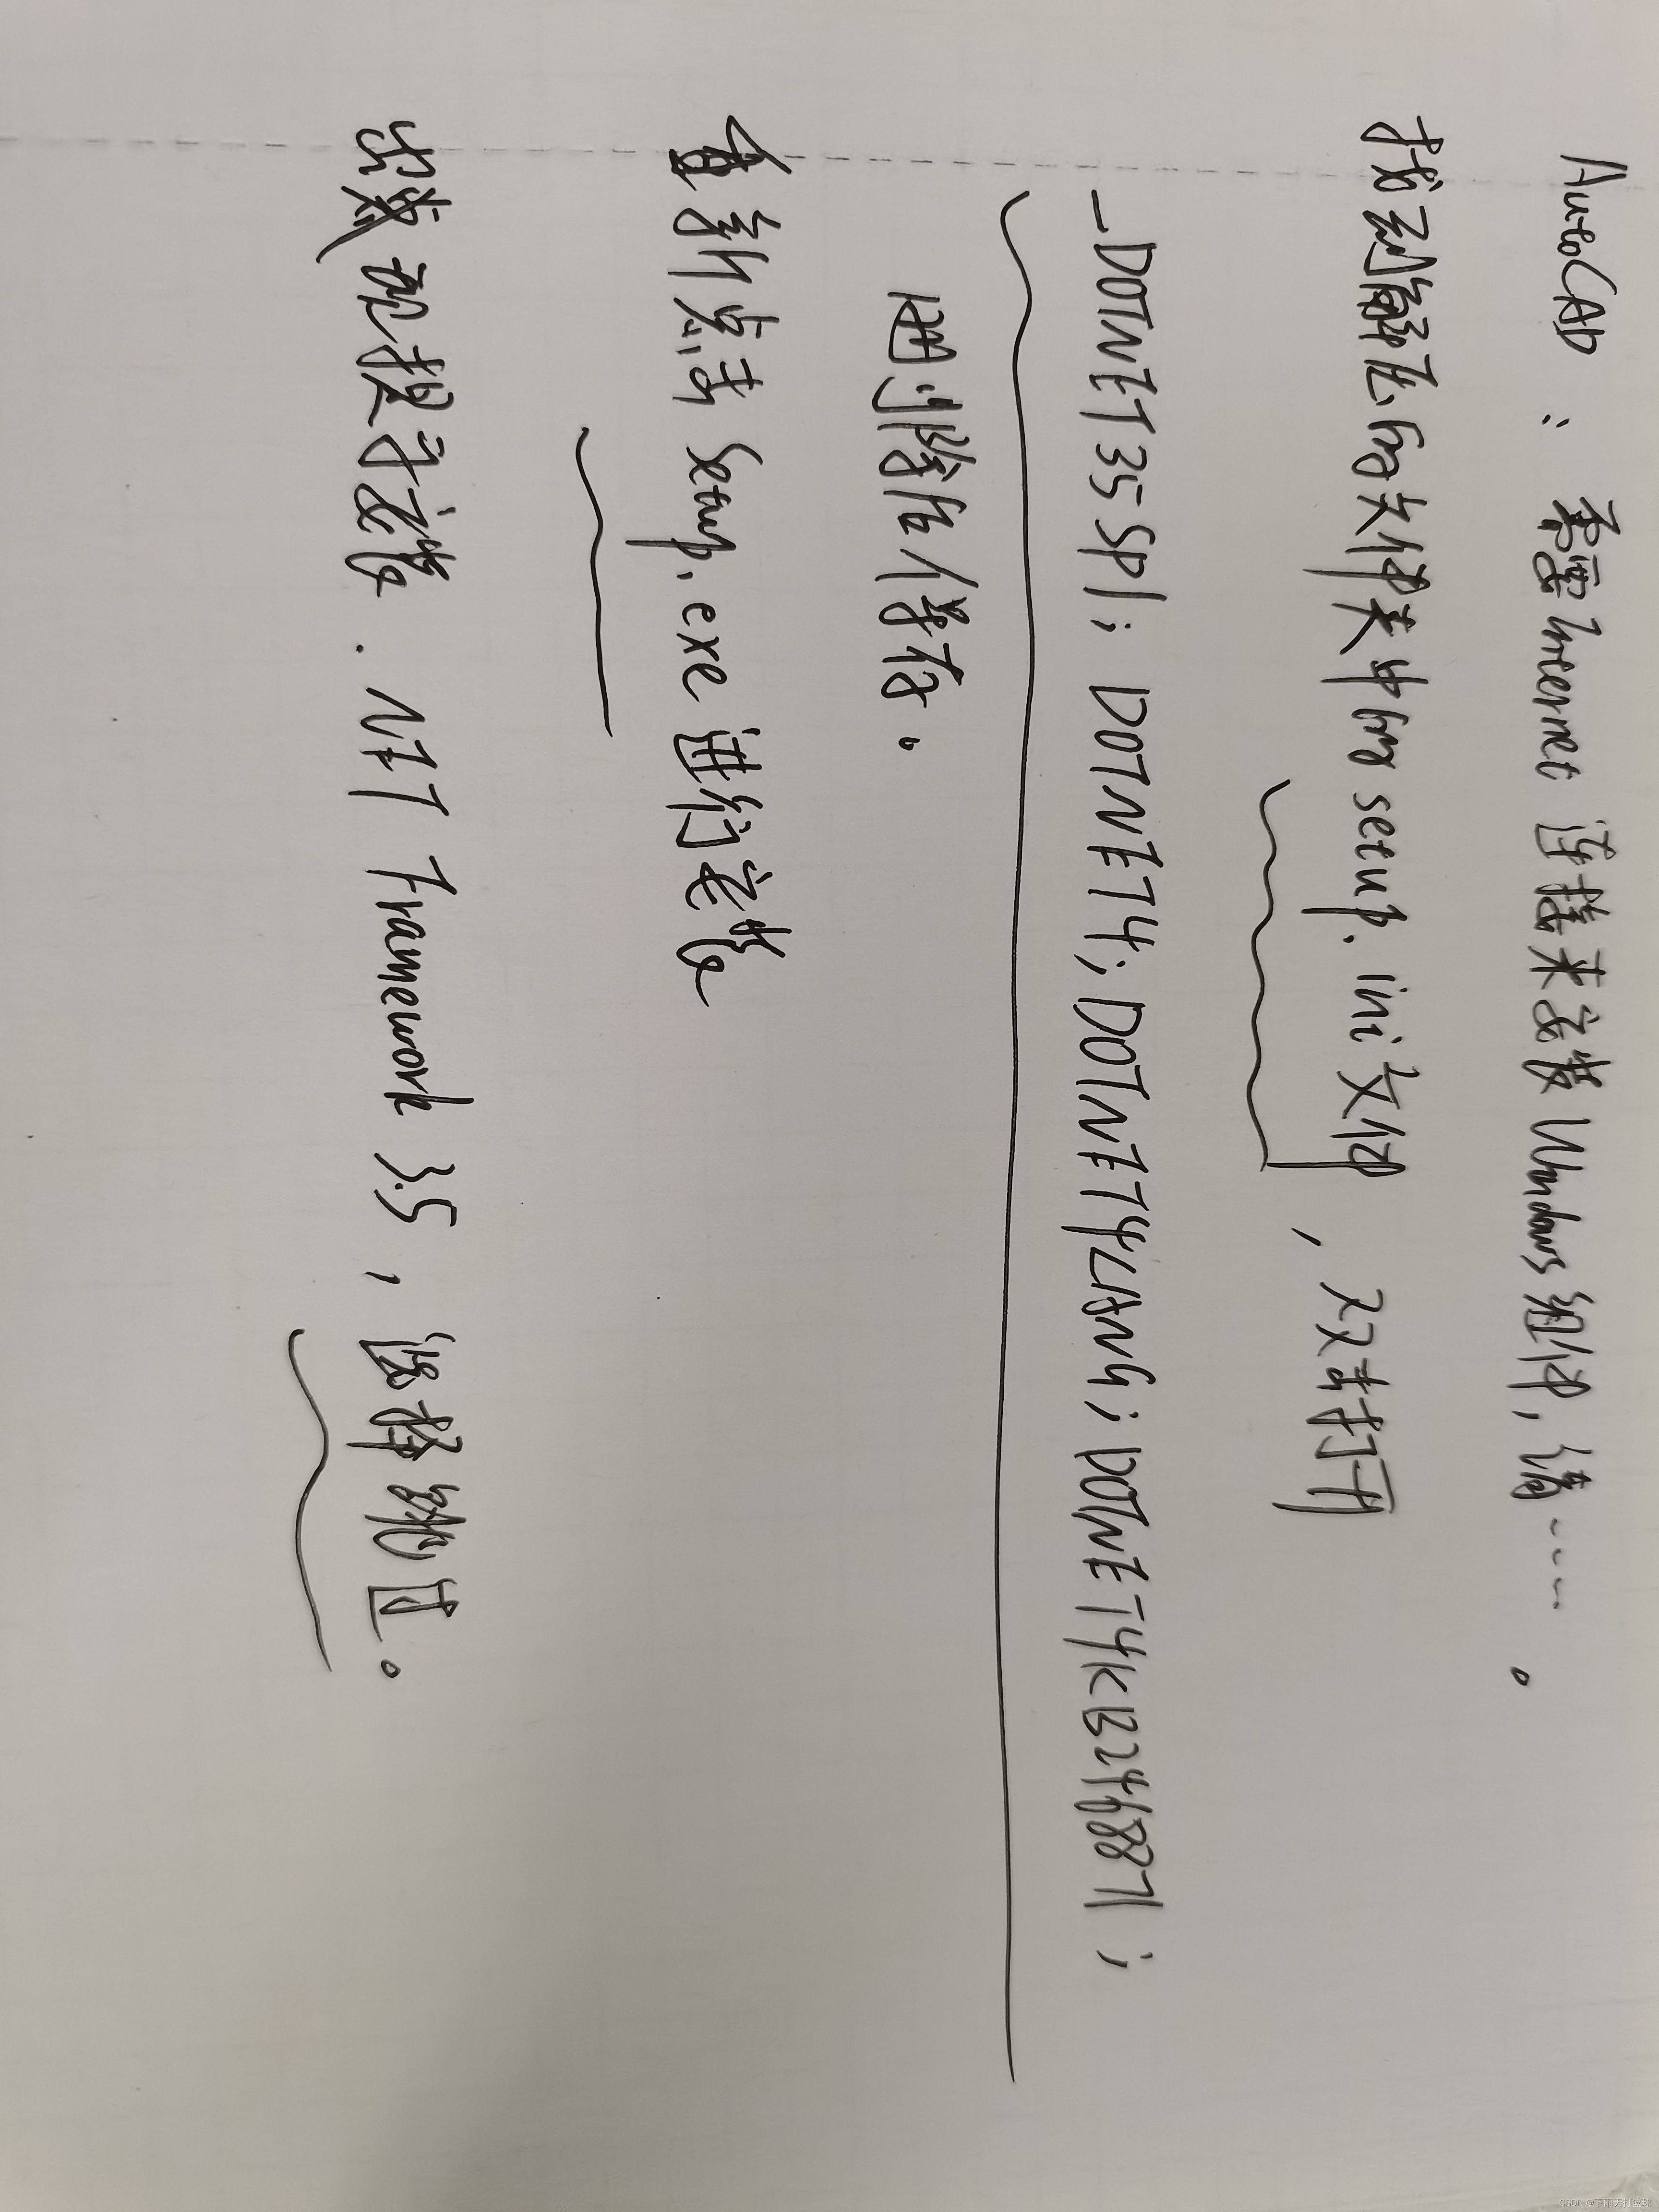 AutoCAD：需要Internet 连接来安装Windows组件,请……。
找到解压的文件夹中的setup.ini文件，双击打开
_DOTNET35SP1; DOTNET4; DOTNET4LANG; DOTNET4KB2468871;
把删除后保存。
重新点击 Setup.exe 进行安装
出载如提示安装.NET Framework 3.5，选择跳过。
CSDN @下雨天打篮球